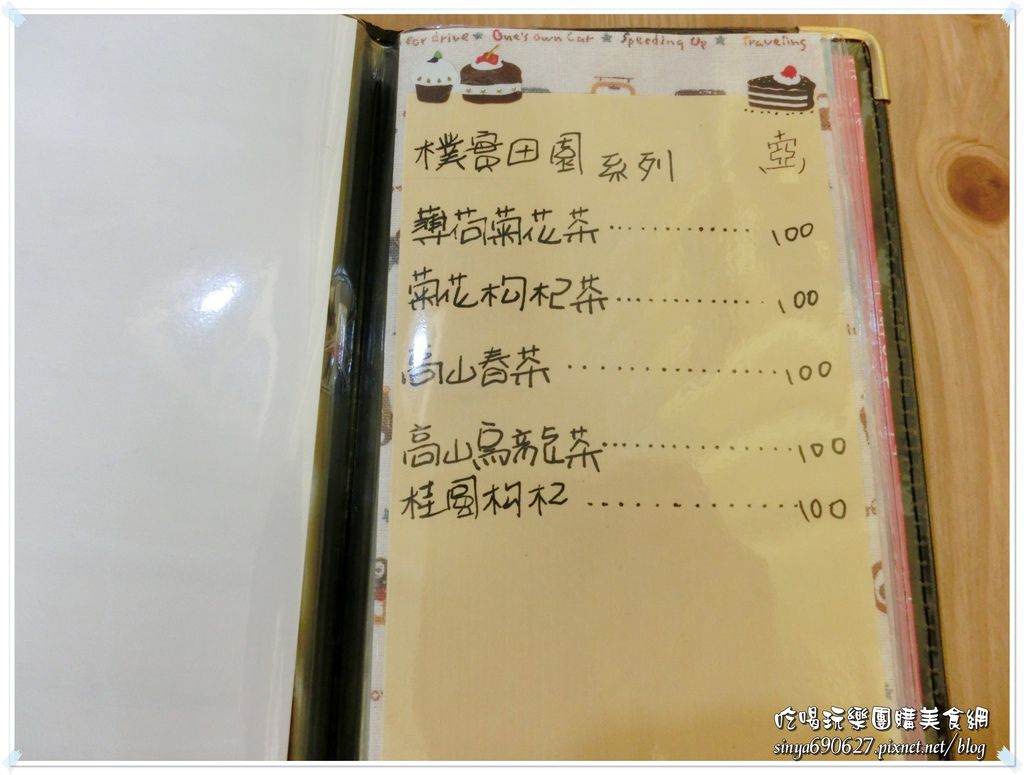 for drive ★ One's own Car ★ Speeding Up ★ Traveling
樸實田園 系列 壺
薄荷菊花茶 ············ 100
菊花枸杞茶 ············ 100
高山春茶 ················ 100
高山烏龍茶 ·············· 100
桂圓枸杞 ··············· 100
吃喝玩樂團購美食網
sinya690627.pixnet.net/blog